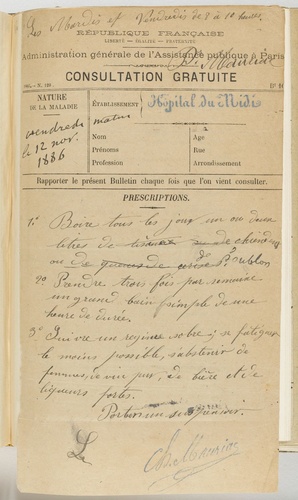 Les Mardis et Vendredis de 8 à 10 heures
RÉPUBLIQUE FRANÇAISE
LIBERTÉ — ÉGALITÉ — FRATERNITÉ
Administration générale de l'Assistance publique à Paris
Dr Mauriac
CONSULTATION GRATUITE
NATURE
DE LA MALADIE
ÉTABLISSEMENT
Hôpital du Midi
vendredi
matin
le 12 nov.
1886
Nom
Age
Prénoms
Rue
Profession
Arrondissement
Rapporter le présent Bulletin chaque fois que l'on vient consulter.
PRESCRIPTIONS.
1° Boire tous les jours un ou deux
litres de tisane de chiendent
ou de queues de cerise Houblon
2° Prendre trois fois par semaine
un grand bain simple de une
heure de durée.
3° Suivre un regime sobre; se fatiguer
le moins possible, s'abstenir de
femmes, de vin pur, de bière et de
liqueurs fortes.
Porter un suspensoir.
Le
Ch. Mauriac